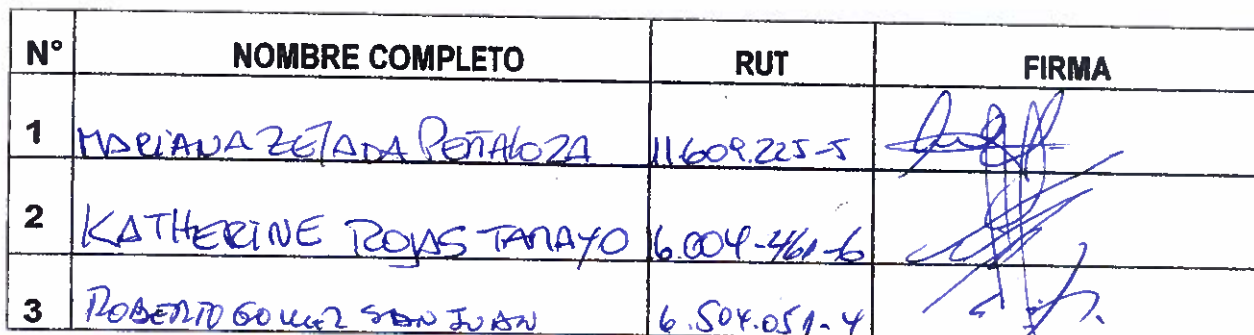 N° NOMBRE COMPLETO RUT FIRMA
1 MARIANA ZEJADA PEÑALOZA 11.609.225-5
2 KATHERINE ROJAS TAMAYO 6.004-461-6
3 ROBERTO GOMEZ SAN JUAN 6.504.051-4